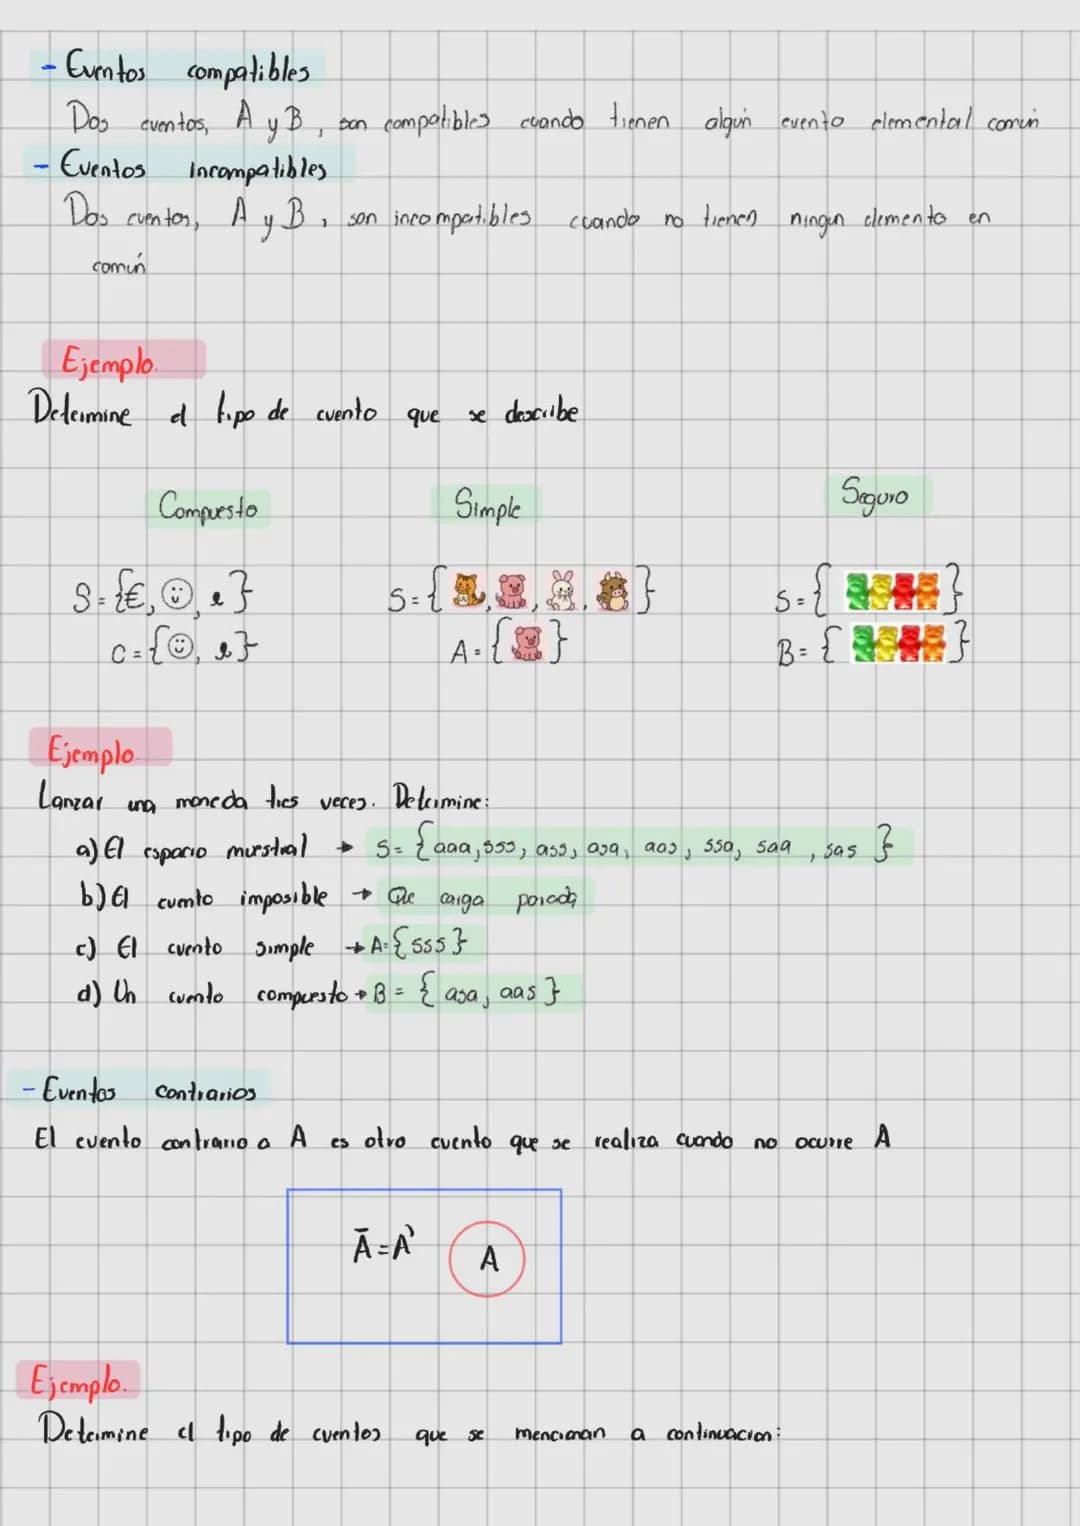 - Eventos compatibles
Dos eventos, A y B, son compatibles cuando tienen algún evento elemental común
- Eventos incompatibles
Dos eventos, A y B, son incompatibles cuando no tienen ningun elemento en
común
Ejemplo.
Determine el tipo de evento que se describe
Compuesto Simple Seguro
S={€, ☺, e} S={ , , , } S={ }
C={☺, e} A={ } B={ }
Ejemplo.
Lanzar una moneda tres veces. Determine:
a) El espacio muestral → S= {aaa, sss, ass, asa, aas, ssa, saa, sas }
b) El evento imposible → Que caiga parada
c) El evento simple → A={sss}
d) Un evento compuesto → B = { asa, aas }
- Eventos contrarios
El evento contrario a A es otro evento que se realiza cuando no ocurre A
Ā=A' A
Ejemplo.
Determine el tipo de eventos que se mencionan a continuacion: